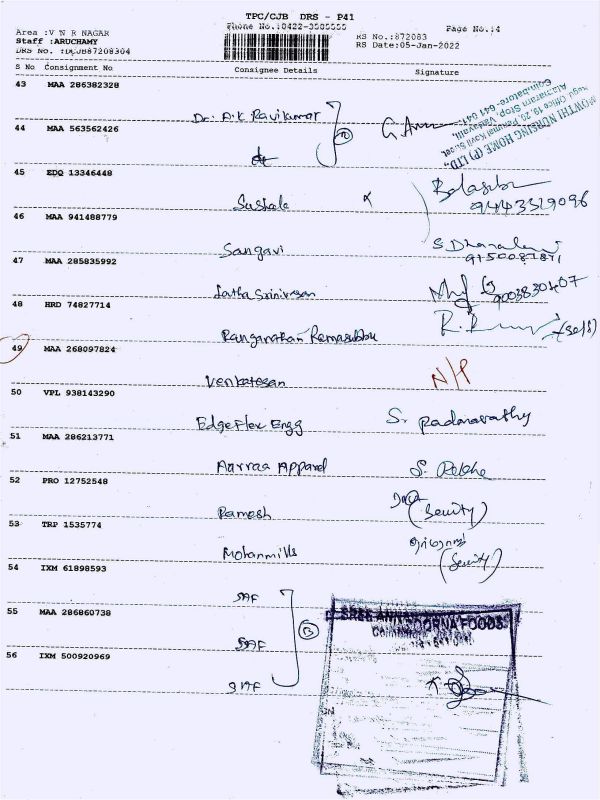 TPC/CJB DRS - P41
Phone No.:0422-3505555
Page No.:4
Area :V N R NAGAR
Staff :ARUCHAMY
RS No.:872083
RS Date:05-Jan-2022
S No Consignment No Consignee Details Signature
43 MAA 286382328
Dr. A.K Ravikumar
MOWTHI NURSING HOME (P) LTD.,
44 MAA 563562426
45 EDQ 13346448
Sushala
9443329096
46 MAA 941488779
Sangavi
47 MAA 285835992
Latha Srinivasan 9003830407
48 HRD 74827714
Ranganathan Ramasubbu (self)
49 MAA 268097824
Venkatesan N/P
50 VPL 938143290
EdgeFlex Engg S. Padmavathy
51 MAA 286213771
Aarraa Apparel S. Rekha
52 PRO 12752548
Ramesh (Security)
53 TRP 1535774
Mohanmills
(Security)
54 IXM 61898593
SAF
SREE ANNAPOORNA FOODS
55 MAA 286860738
SAF
56 IXM 500920969
SAF